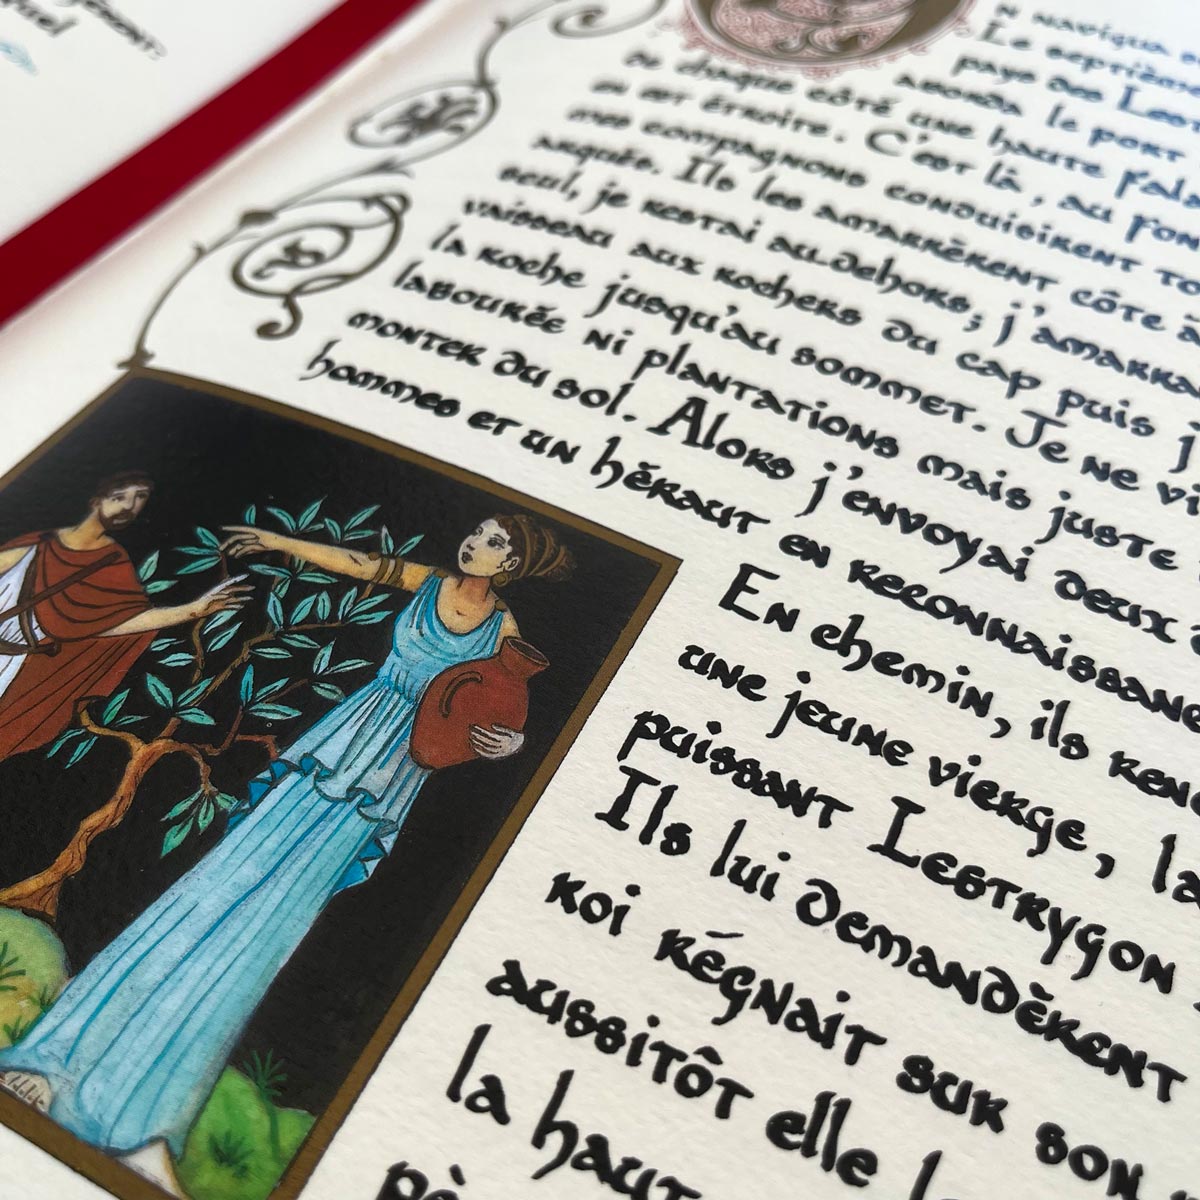 n navigua
Le septième
pays des
aborda le port
de chaque côté une haute
en est étroite. C'est là, au
mes compagnons conduisirent
arqués. Ils les amarrèrent côte à
seul, je restai au.dehors; j'amarrai
vaisseau aux rochers du cap puis j
la roche jusqu'au sommet. Je ne vi
labourée ni plantations mais juste
monter du sol. Alors j'envoyai deux
hommes et un héraut en reconnaissanc
En chemin, ils renc
une jeune vierge, la
puissant Lestrygon
Ils lui demandèrent
roi régnait sur son
aussitôt elle
la haut
pè